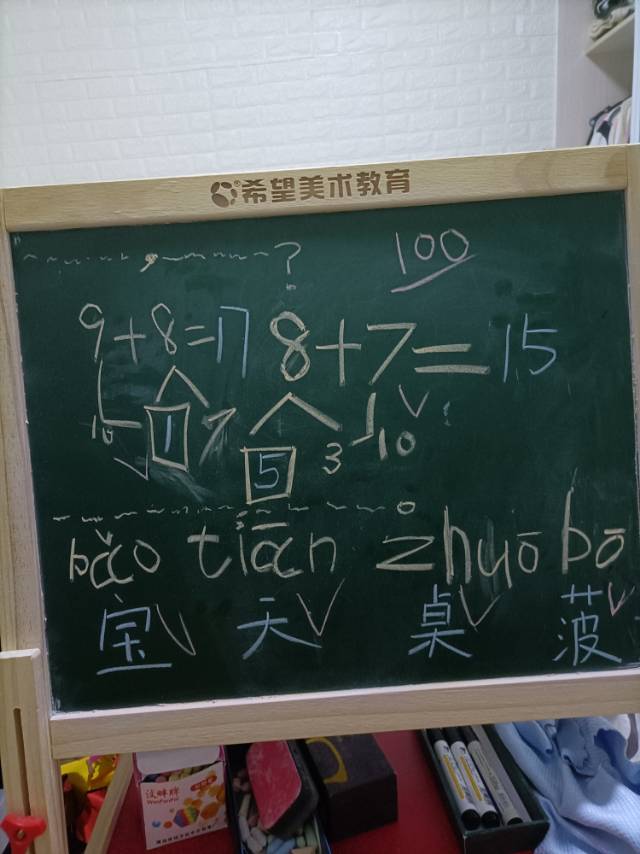 希望美术教育
? 100
9+8=17 8+7=15
10 1 7 5 3 10
bǎo tiān zhuō bō
宝 天 桌 菠
没畔牌